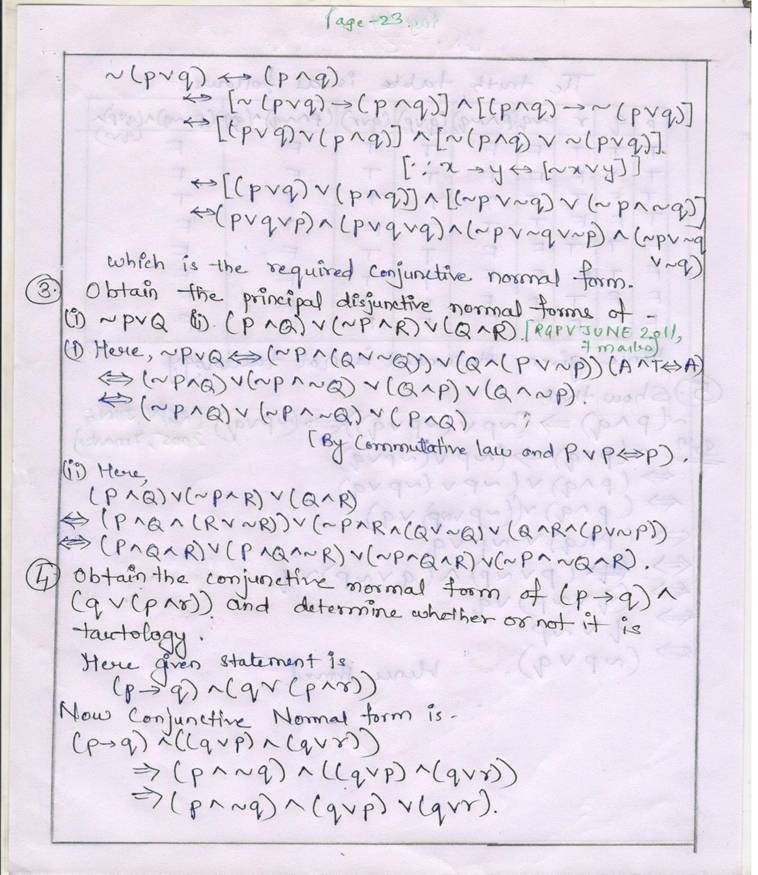 Page-23.
~(p∨q) ↔ (p∧q)
↔ [~(p∨q)→(p∧q)]∧[(p∧q)→~(p∨q)]
↔[(p∨q)∨(p∧q)]∧[~(p∧q)∨~(p∨q)]
[∵x→y↔[~x∨y]]
↔[(p∨q)∨(p∧q)]∧[(~p∨~q)∨(~p∧~q)]
↔(p∨q∨p)∧(p∨q∨q)∧(~p∨~q∨~p)∧(~p∨~q
∨~q)
which is the required conjunctive normal form.
③. Obtain the principal disjunctive normal forms of -
(i) ~P∨Q (ii). (P∧Q)∨(~P∧R)∨(Q∧R). [RGPV JUNE 2011,
7 marks]
(i) Here, ~P∨Q⇔(~P∧(Q∨~Q))∨(Q∧(P∨~P)) (A∧T⇔A)
⇔(~P∧Q)∨(~P∧~Q)∨(Q∧P)∨(Q∧~P).
⇔(~P∧Q)∨(~P∧~Q)∨(P∧Q)
[By Commutative law and P∨P⇔P).
(ii) Here,
(P∧Q)∨(~P∧R)∨(Q∧R)
⇔(P∧Q∧(R∨~R))∨(~P∧R∧(Q∨~Q)∨(Q∧R∧(P∨~P))
⇔(P∧Q∧R)∨(P∧Q∧~R)∨(~P∧Q∧R)∨(~P∧~Q∧R).
④ Obtain the conjunctive normal form of (p→q)∧
(q∨(p∧r)) and determine whether or not it is
tautology.
Here given statement is
(p→q)∧(q∨(p∧r))
Now Conjunctive Normal form is-
(p→q)∧((q∨p)∧(q∨r))
⇒(p∧~q)∧((q∨p)∧(q∨r))
⇒(p∧~q)∧(q∨p)∨(q∨r).